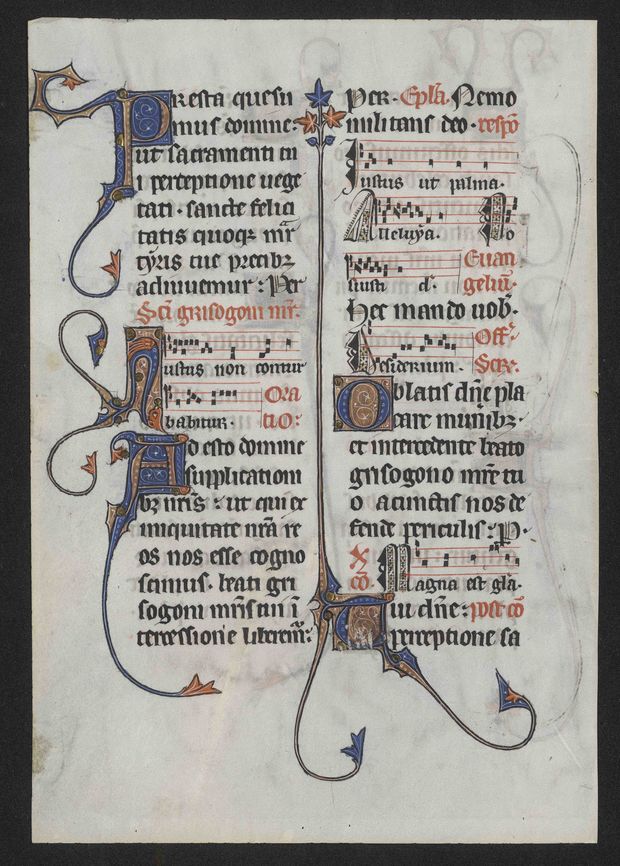 Presta quesu
mus domine:
ut sacramenti tu
i perceptione uege
tati · sancte felici
tatis quoqz mr̄
tyris tue precibz
adiuuemur : Per
Sc̄i grisogoni mr̄.
Iustus non contur
babitur. Ora
tio:
Ad esto domine
supplicationi
bz nr̄is : ut qui ex
iniquitate nr̄a re
os nos esse cogno
scimus · beati gri
sogoni mr̄is tui ī
tercessione liberem̄:
Per · Epl̄a. Nemo
militans deo · respō
Iustus ut palma.
Alleluya. Po
siusti d̄. Euan
gelium.
Hec mando uob̄.
Desiderium. Off̄
Secr̄.
Oblatis dn̄e pla
care munibz ·
et intercedente beato
grisogono mr̄e tu
o a cunctis nos de
fende periculis : P.
cō. Magna est gl̄a.
Tui dn̄e : post cō
perceptione sa